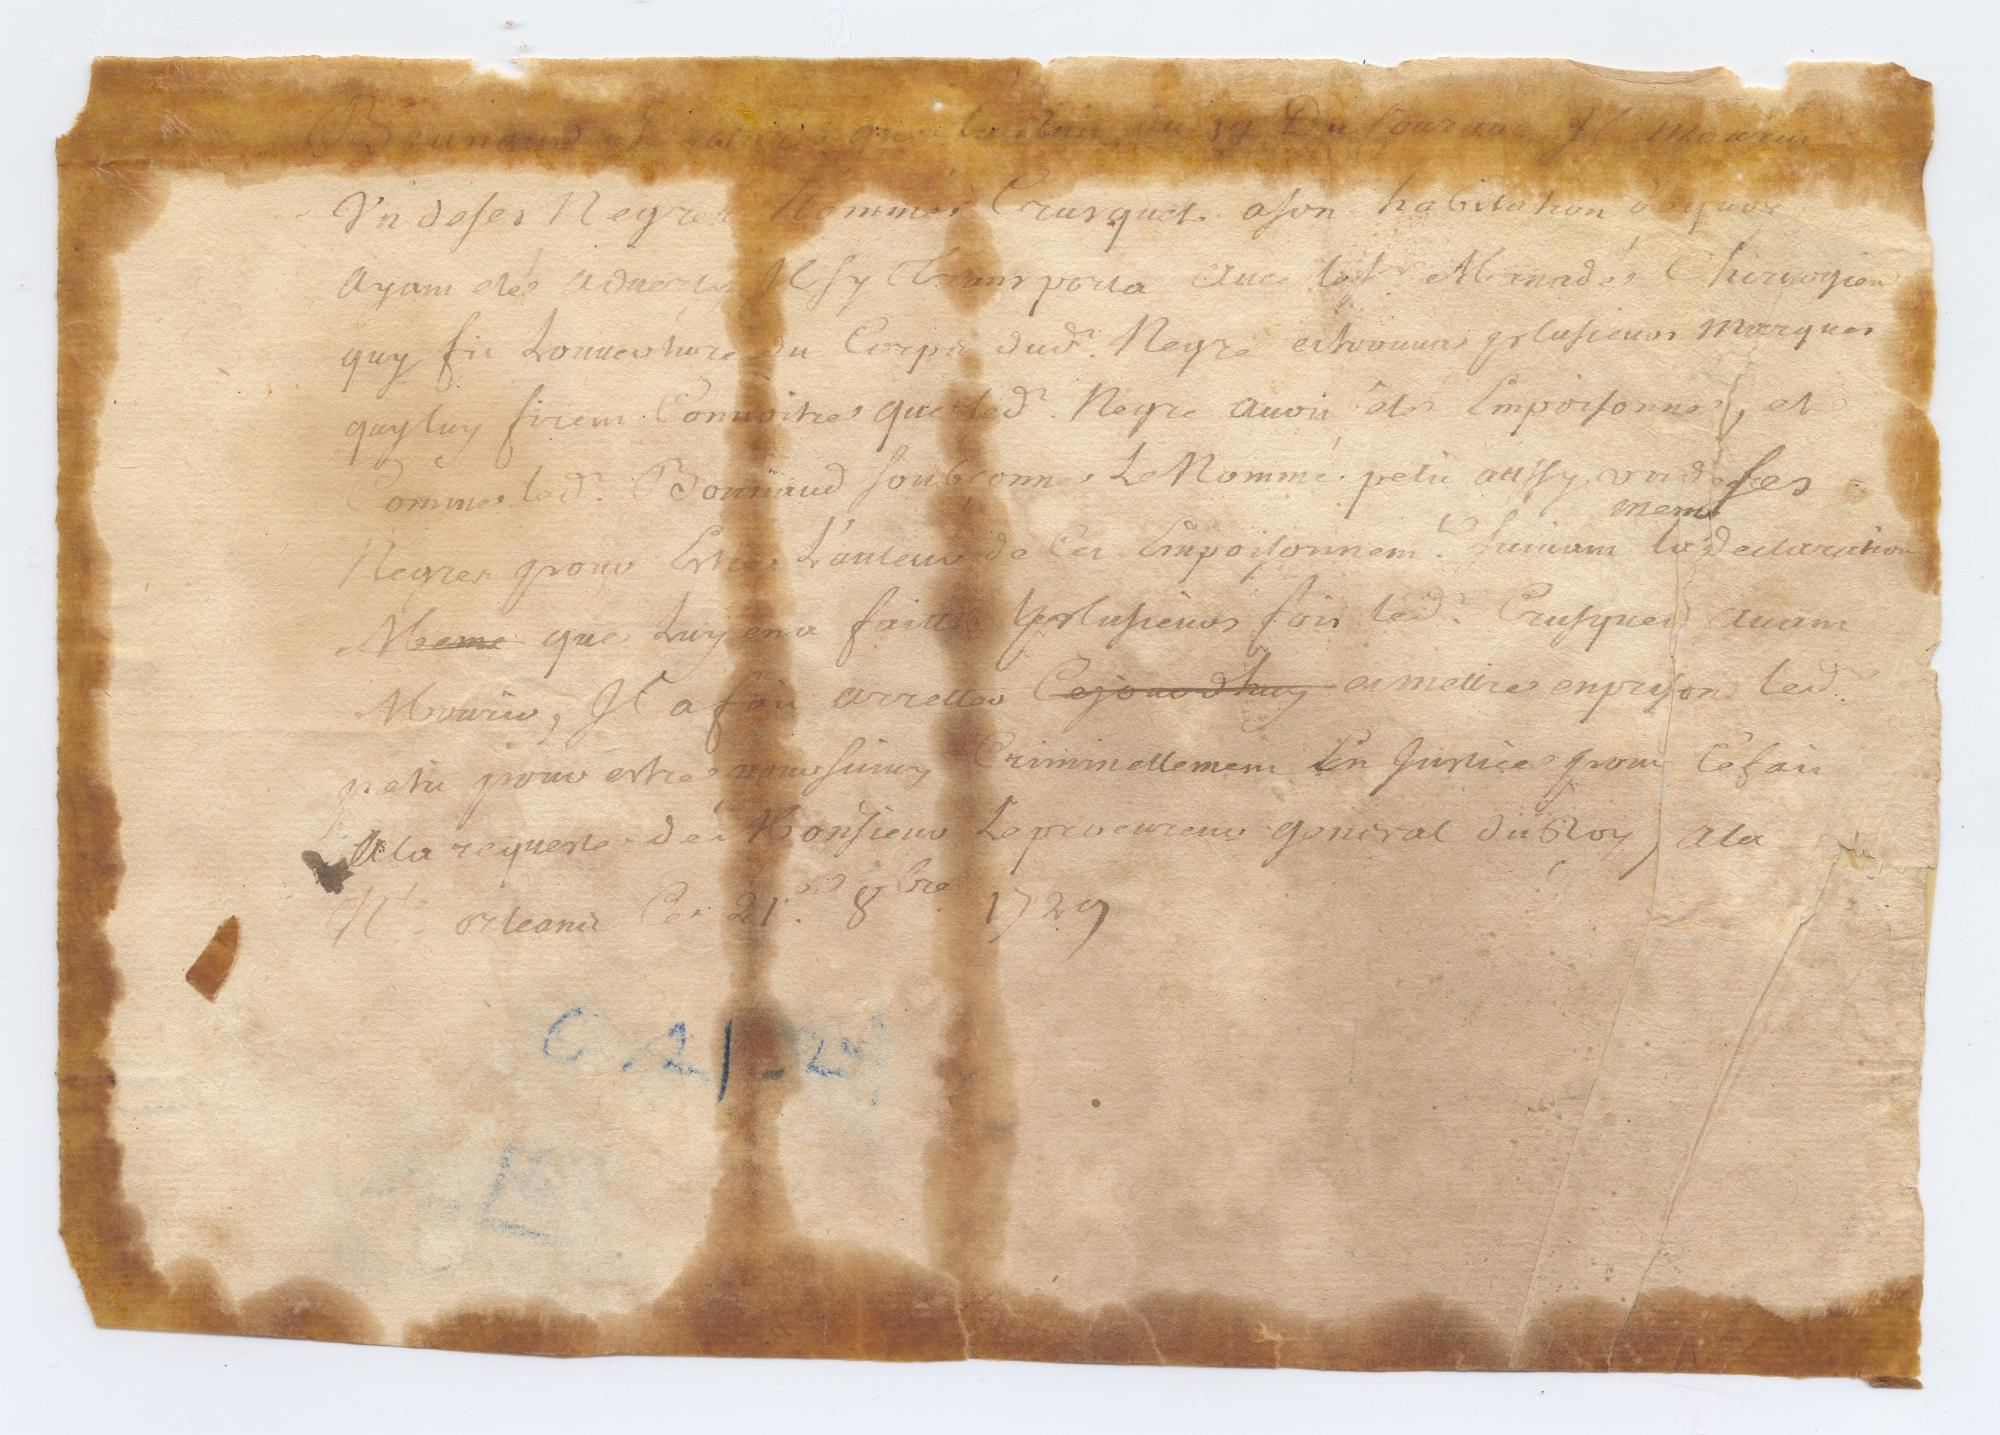 Bonnaud Declare que le du 19 Du Courant Il mourut
Vn de ses Negres Nommé Crusquet a son habitation
ayant eté aduerty Il sy Transporta auec le Sr. Chirurgien
quy fit Louuerture du Corps dud.t Negre et trouua plusieurs marques
quy luy firent Connoitre que led.t Negre auoit eté Empoisonné, et
Comme led.t Bonnaud soubconne Le Nommé petit aussy vn de ses
Negres pour Estre L'auteur de Cet Empoisonnem.t suiuant la meme declaration
Meme que Luy en a faitte plusieurs fois led.t Crusquet auant
Mourir, Il a fait arretter Cejourdhuy et mettre en prison led.t
petit pour estre poursuiuy Criminellement En Justice pour Ce fait
Ala requeste de Monsieur Le procureur general du Roy, ala
N.le orleans Ce 21.e 8bre 1729